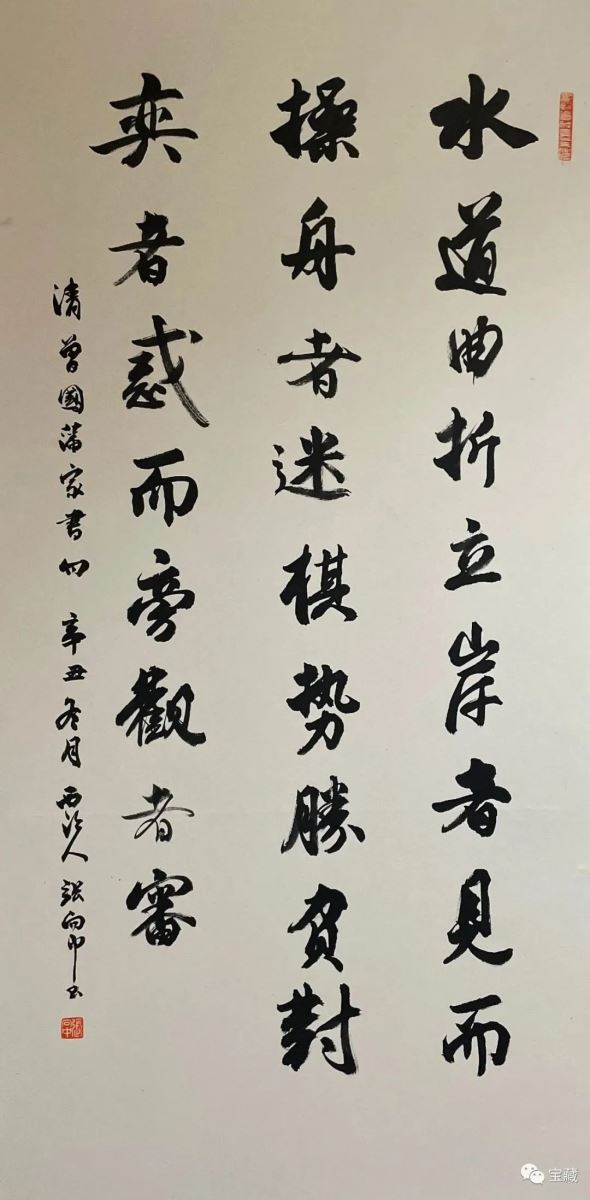 水道曲折立岸者見而
操舟者迷棋势勝負對
奕者惑而旁觀者審
清曾國藩家書句 辛丑冬月 西 人 張向中书
宝藏